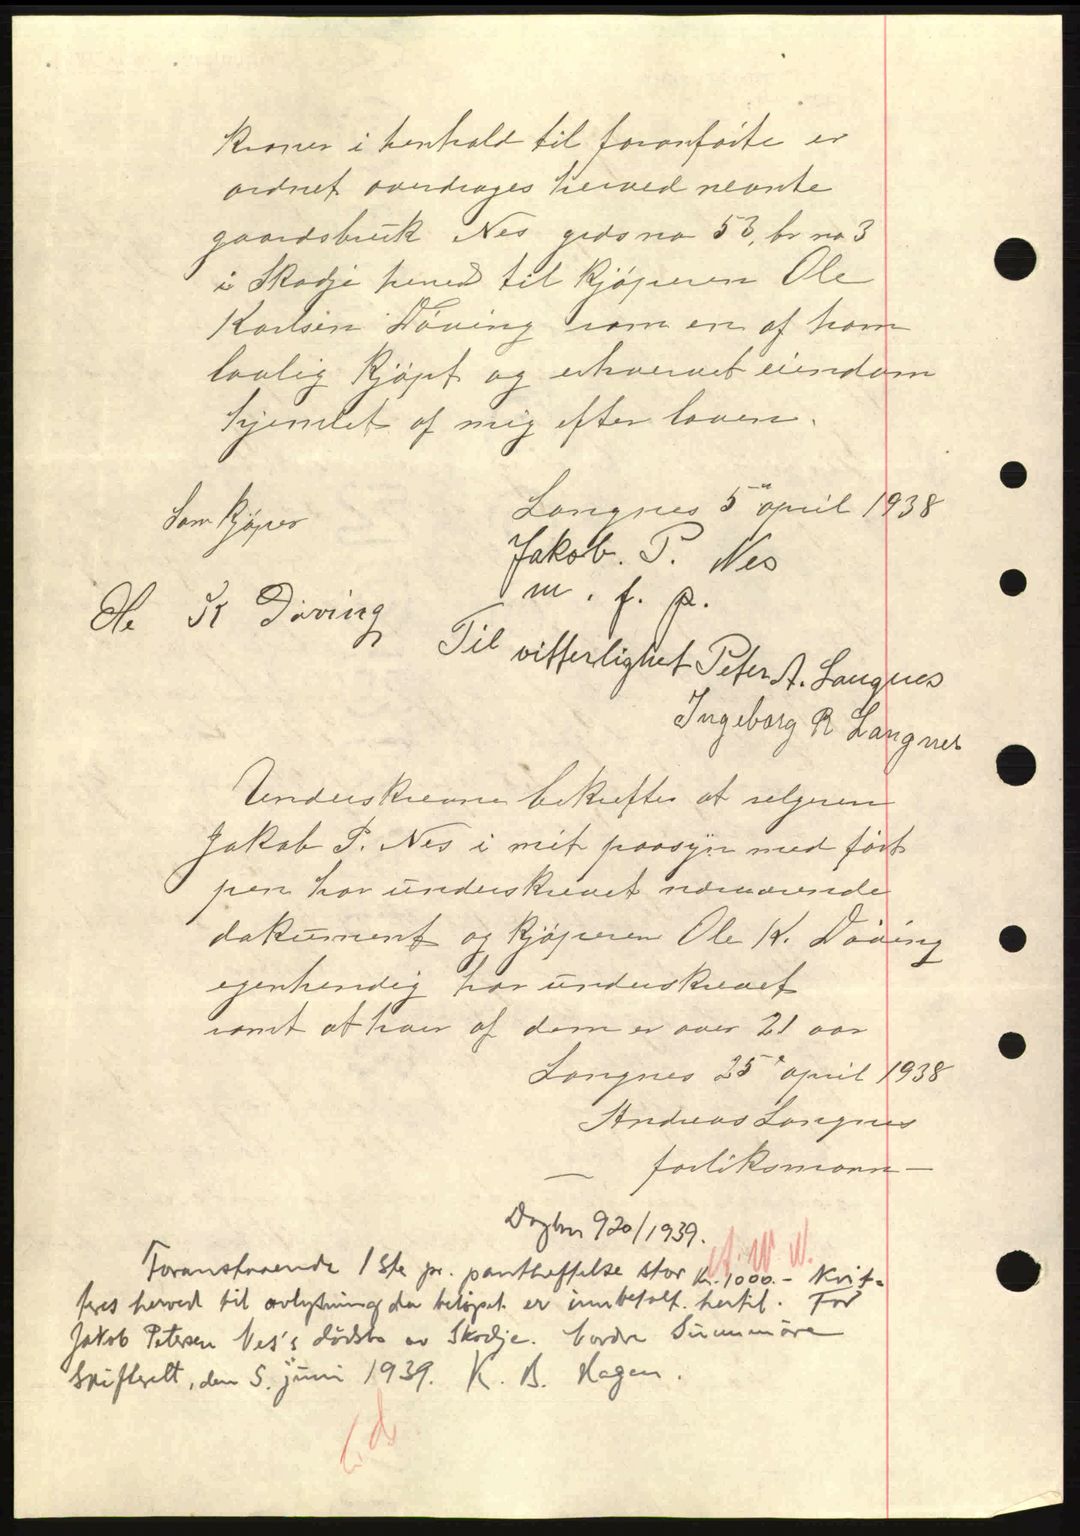 kroner i henhold til foranførte er
ordnet overdrages herved nevnte
gaardsbruk Nes grdsno 53, br no 3
i Skodje herred til kjøperen Ole
Karlsen Døving som en af ham
lovlig kjøpt og erhvervet eiendom
hjemlet af mig efter loven.
Langnes 5 april 1938
Som kjøper
Jakob. P. Nes
m. f. p.
Ole K Døving
Til vitterlighet Peter A. Langnes
Ingeborg R Langnes
Underskrevne bekrefter at selgeren
Jakob P. Nes i mit paasyn med ført
pen har underskrevet nærværende
dokument og kjøperen Ole K. Døving
egenhendig har underskrevet
samt at hver af dem er over 21 aar
Langnes 25 april 1938
Andreas Langnes
— forliksmann —
Dagbn 920/1939.
Foranstaaende 1ste pr. pantheftelse stor kr. 1000.- kvit-
teres herved til avlysning da beløpet er innbetalt hertil. For
Jakob Petersen Nes's dødsbo av Skodje. Nordre Sunnmøre
Skifterett, den 5. juni 1939. K. B. Hagen.